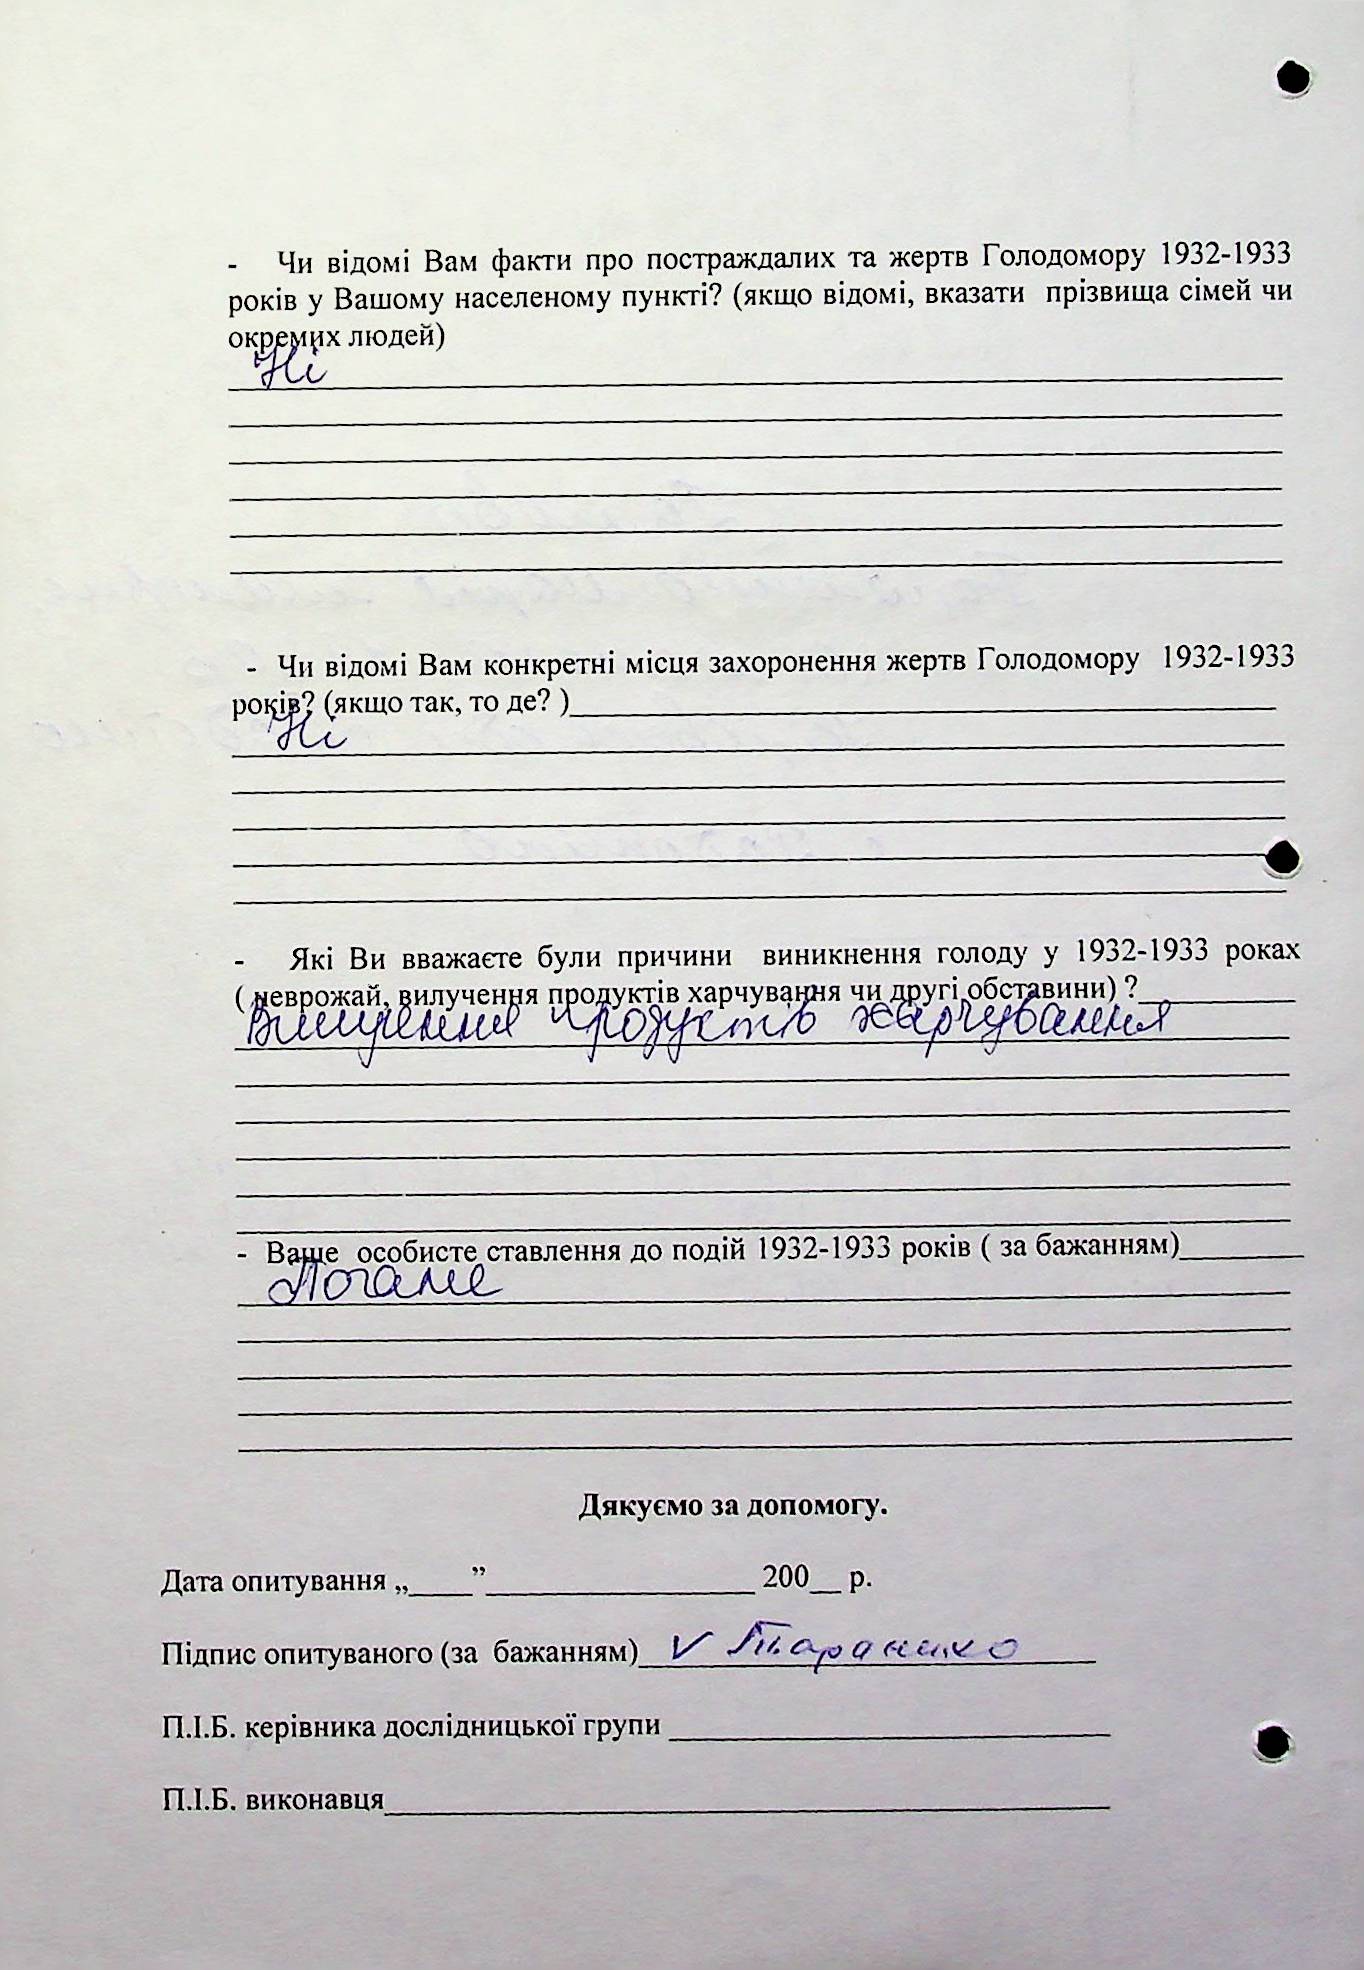 - Чи відомі Вам факти про постраждалих та жертв Голодомору 1932-1933
років у Вашому населеному пункті? (якщо відомі, вказати прізвища сімей чи
окремих людей)
Ні
- Чи відомі Вам конкретні місця захоронення жертв Голодомору 1932-1933
років? (якщо так, то де? )
Ні
- Які Ви вважаєте були причини виникнення голоду у 1932-1933 роках
( неврожай, вилучення продуктів харчування чи другі обставини) ?
Вилучення продуктів харчування
- Ваше особисте ставлення до подій 1932-1933 років ( за бажанням)
Погане
Дякуємо за допомогу.
Дата опитування „____”____ 200__ р.
Підпис опитуваного (за бажанням) V
П.І.Б. керівника дослідницької групи
П.І.Б. виконавця